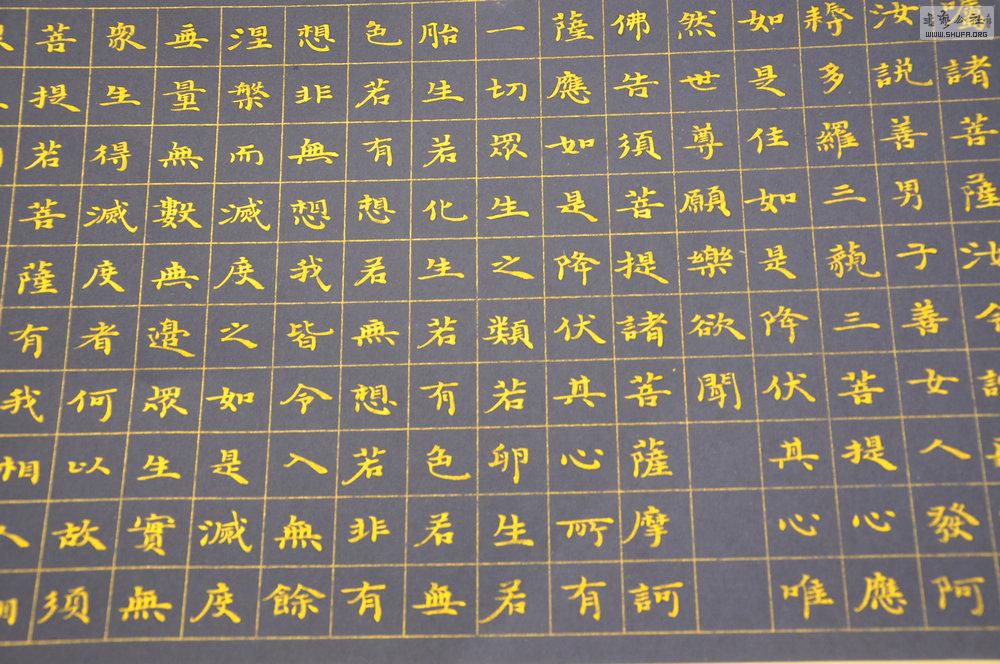 諸菩薩汝今
汝說善男子善女人發阿
耨多羅三藐三菩提心應
如是住如是降伏其心唯
然世尊願樂欲聞
佛告須菩提諸菩薩摩訶
薩應如是降伏其心所有
一切眾生之類若卵生若
胎生若化生若有色若無
色若有想若無想若非有
想非無想我皆令入無餘
涅槃而滅度之如是滅度
無量無數無邊眾生實無
眾生得滅度者何以故須
菩提若菩薩有我相人相
WWW.SHUFA.ORG